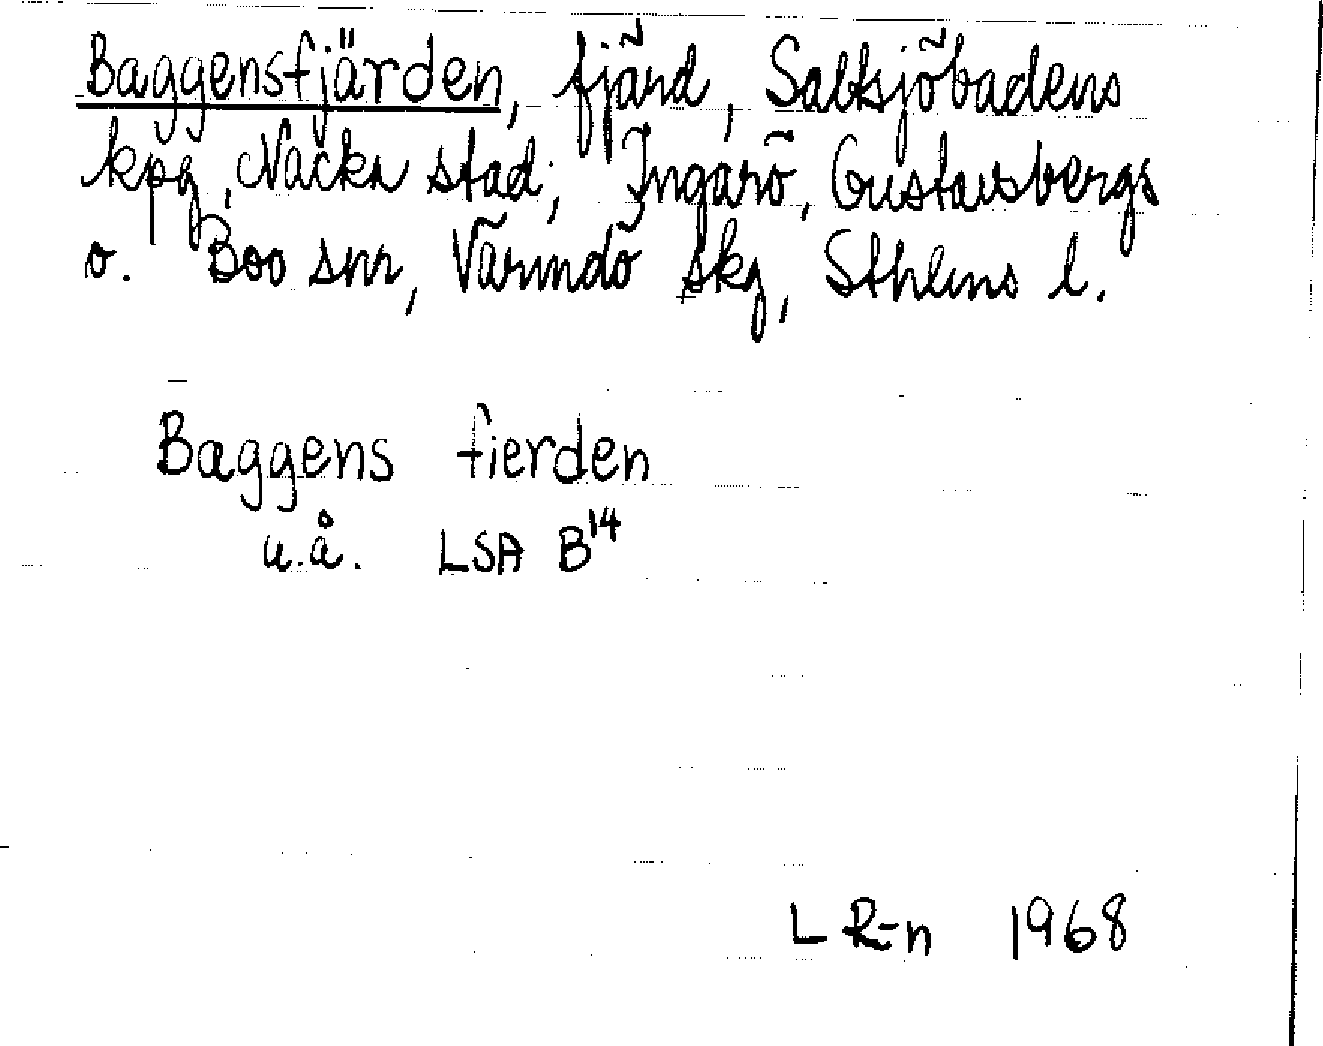 Baggensfjärden, fjärd, Saltsjöbadens
kpg, Nacka stad; Ingarö, Gustavsbergs
o. Boo snr, Värmdö skg, Sthlms l.
Baggens fierden
u.å. LSA B¹⁴
L R-n 1968